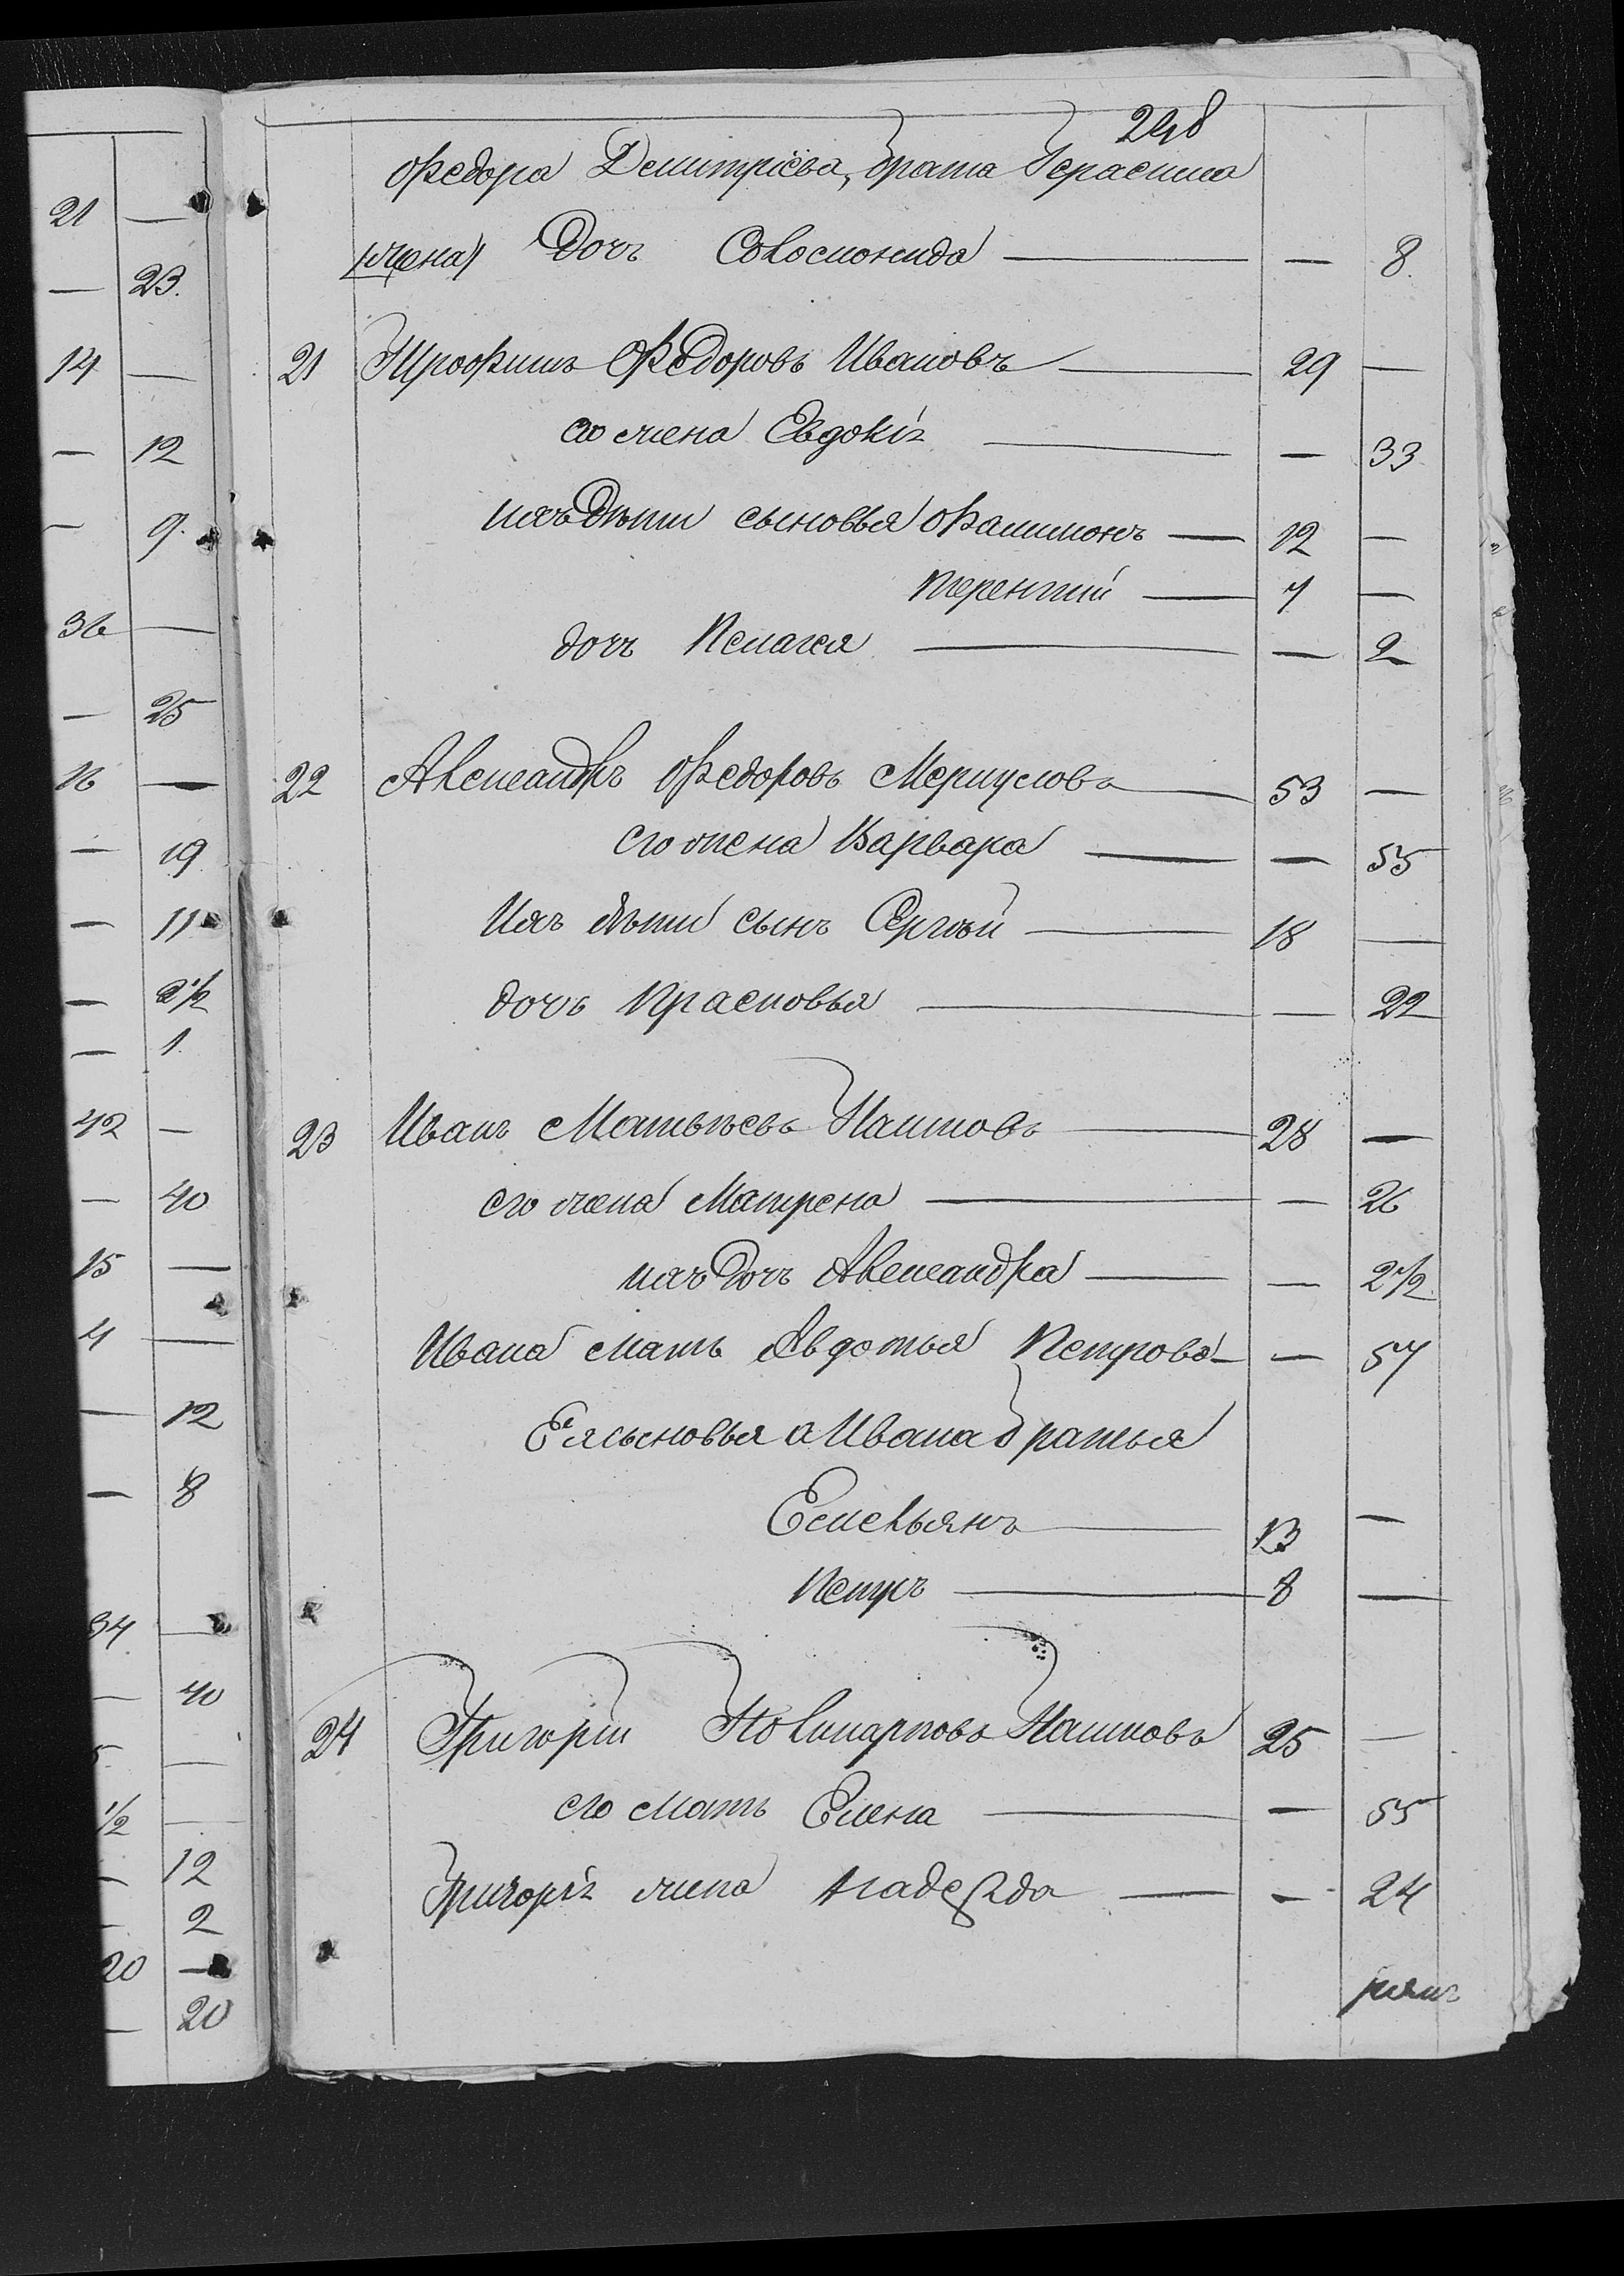 248
Федора Демитріева, брата Герасима
/жена/ дочь Соломонида — — 8.
21 Трофимъ Федоровъ Ивановъ — 29 —
его жена Евдокія — — 33
ихъ дѣти сыновья Филимонъ — 12 —
Терентий — 7 —
дочь Пелагея — — 2
22 Александръ Федоровъ Меркуловъ — 53 —
его жена Варвара — — 55
Ихъ дѣти сынъ Сергѣй — 18 —
дочь Прасковья — — 22
23 Иванъ Матвѣевъ Пашковъ — 28 —
его жена Матрена — — 26
ихъ дочь Александра — — 2 1/2
Ивана мать Авдотья Петрова — — 57
Ея сыновья а Ивана братья
Емельянъ — 13 —
Петръ — 8 —
24 Григорій Поликарповъ Пашковъ 25 —
его мать Елена — — 55
Григорія жена Надежда — — 24
21 —
— 23.
14 —
— 12
— 9.
36 —
— 25
16 —
— 19
— 11
— 2 1/2
— 1.
42 —
— 40
15 —
4 —
— 12
— 8
34 —
— 40
5 —
1/2 —
— 12
— 2
20 —
— 20